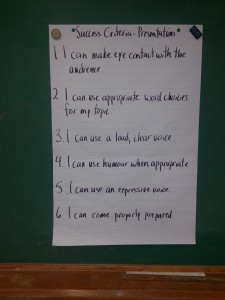 *Success Criteria - Presentations*
1. I can make eye contact with the
audience.
2. I can use appropriate word choices
for my topic
3. I can use a loud, clear voice
4. I can use humour when appropriate
5. I can use an expressive voice.
6. I can come properly prepared.